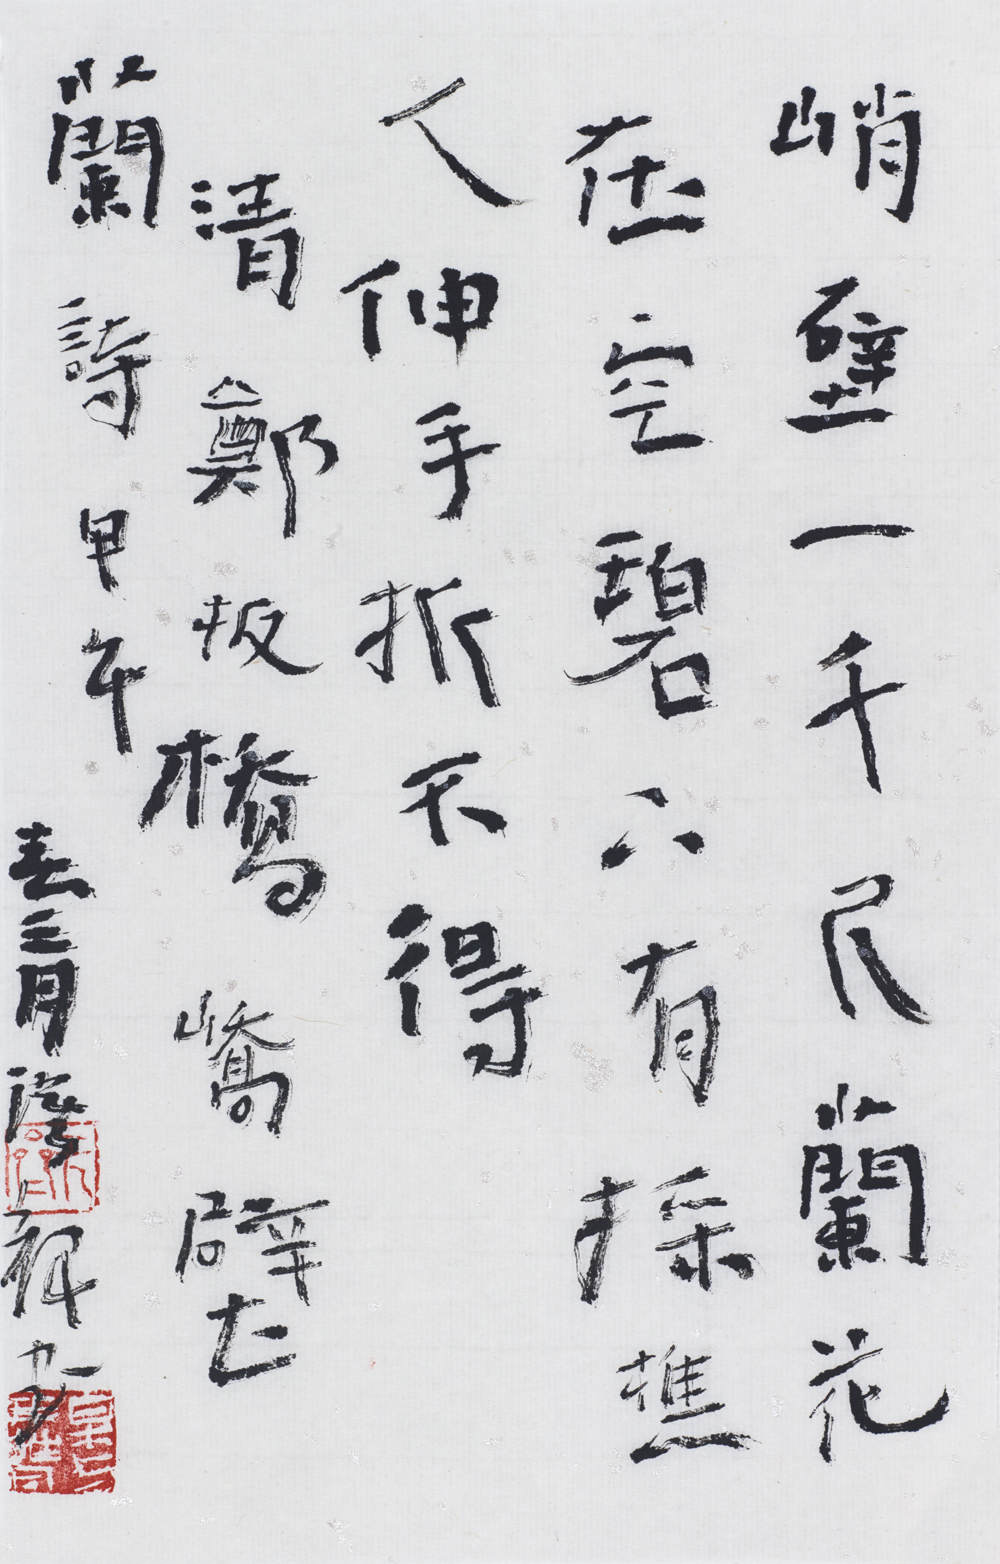 峭壁一千尺蘭花
在空碧下有採樵
人伸手折不得
清鄭板橋嶠壁
蘭詩甲午
春三月祥書